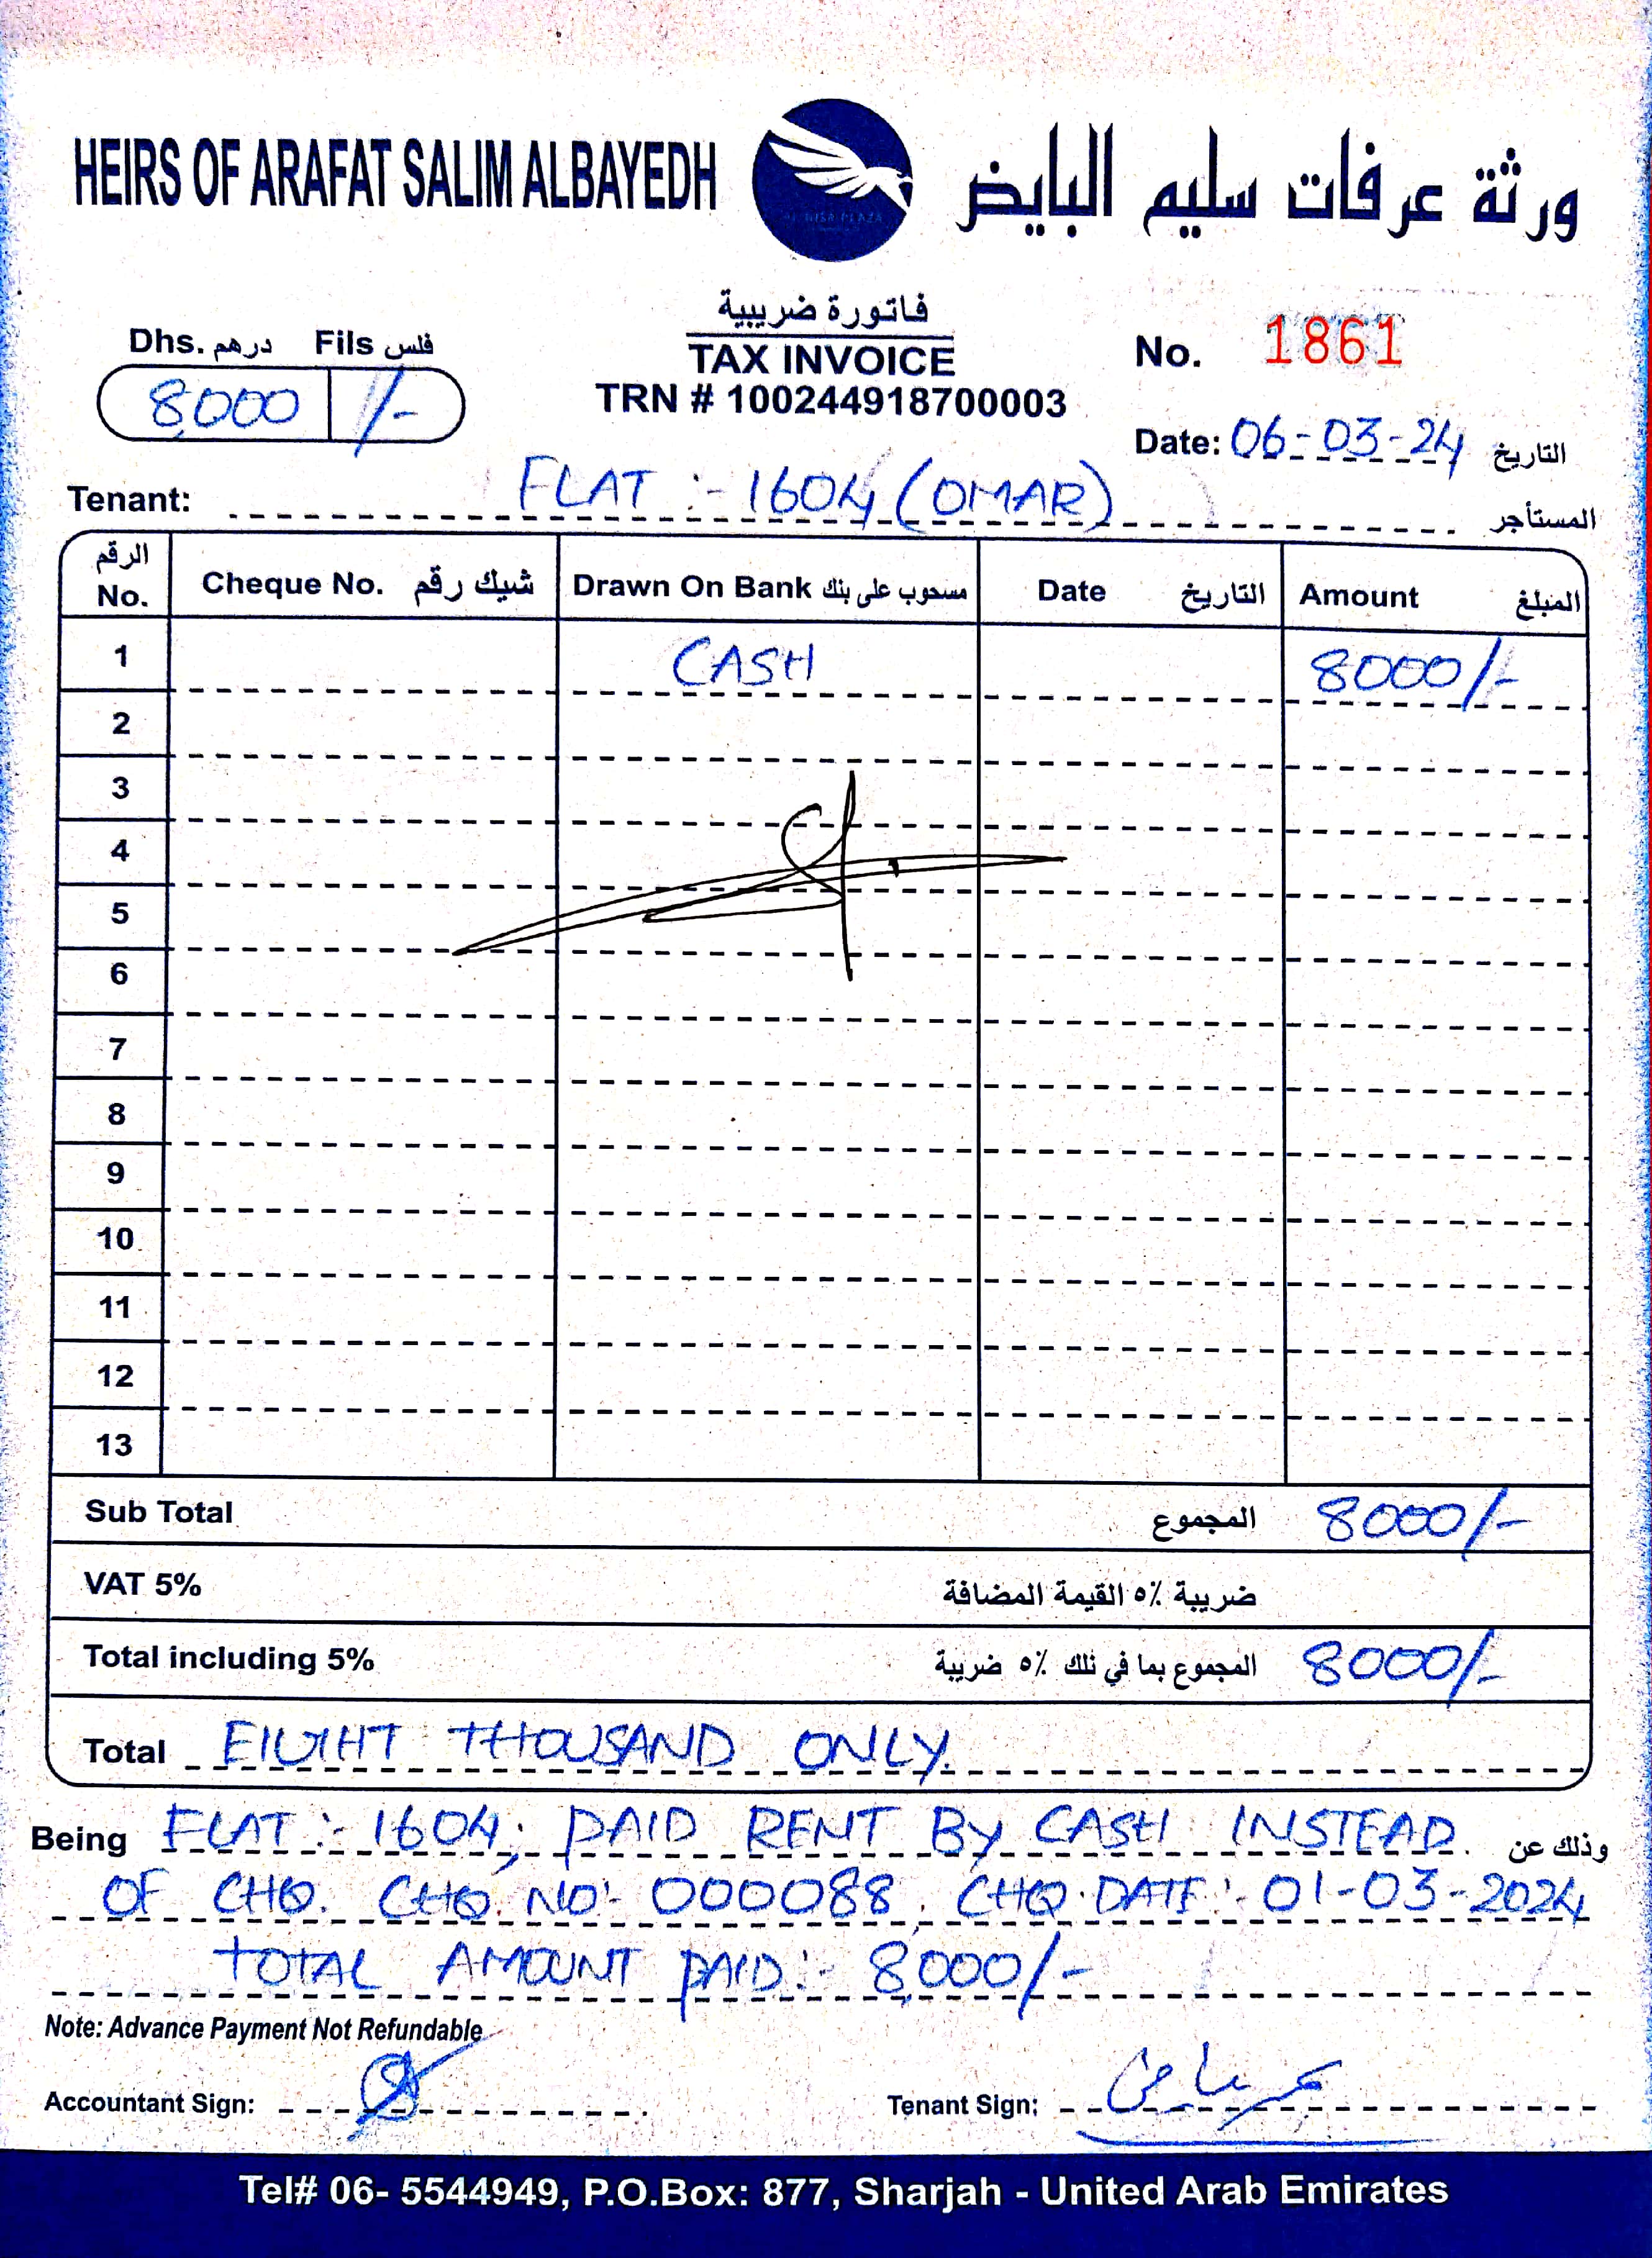 HEIRS OF ARAFAT SALIM ALBAYEDH
ورثة عرفات سليم البايض
فاتورة ضريبية
TAX INVOICE
TRN # 100244918700003
Dhs. درهم Fils فلس
8,000 /-
No. 1861
Date: 06-03-24 التاريخ
Tenant: FLAT :- 1604 (OMAR) المستأجر
الرقم No. Cheque No. شيك رقم Drawn On Bank مسحوب على بنك Date التاريخ Amount المبلغ
1 CASH 8000/-
2
3
4
5
6
7
8
9
10
11
12
13
Sub Total المجموع 8000/-
VAT 5% ضريبة ٥٪ القيمة المضافة
Total including 5% المجموع بما في ذلك ٥٪ ضريبة 8000/-
Total EIGHT THOUSAND ONLY.
Being FLAT :- 1604, PAID RENT BY CASH INSTEAD وذلك عن
OF CHQ. CHQ. NO:- 000088, CHQ. DATE :- 01-03-2024
TOTAL AMOUNT PAID :- 8,000/-
Note: Advance Payment Not Refundable
Accountant Sign:
Tenant Sign:
Tel# 06- 5544949, P.O.Box: 877, Sharjah - United Arab Emirates